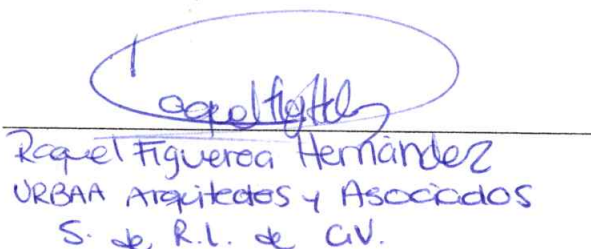 Raquel Figueroa Hernández
URBAA Arquitectos y Asociados
S. de R.L. de C.V.